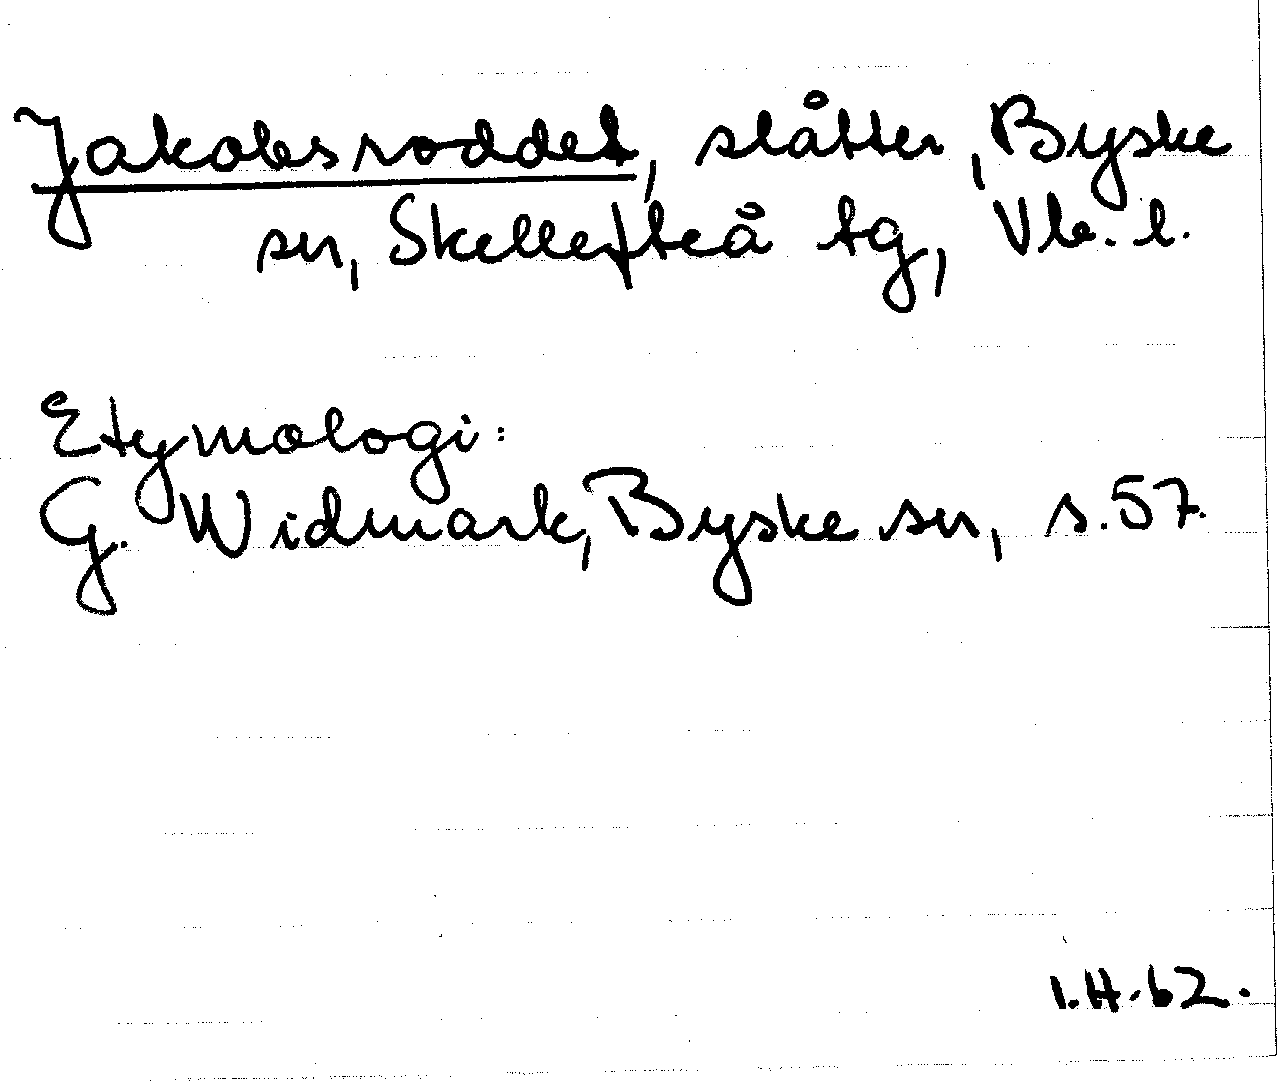 Jakobsroddet, slåtter, Byske
sn, Skellefteå tg, Vb. l.
Etymologi:
G. Widmark, Byske sn, s. 57.
I.H.62.